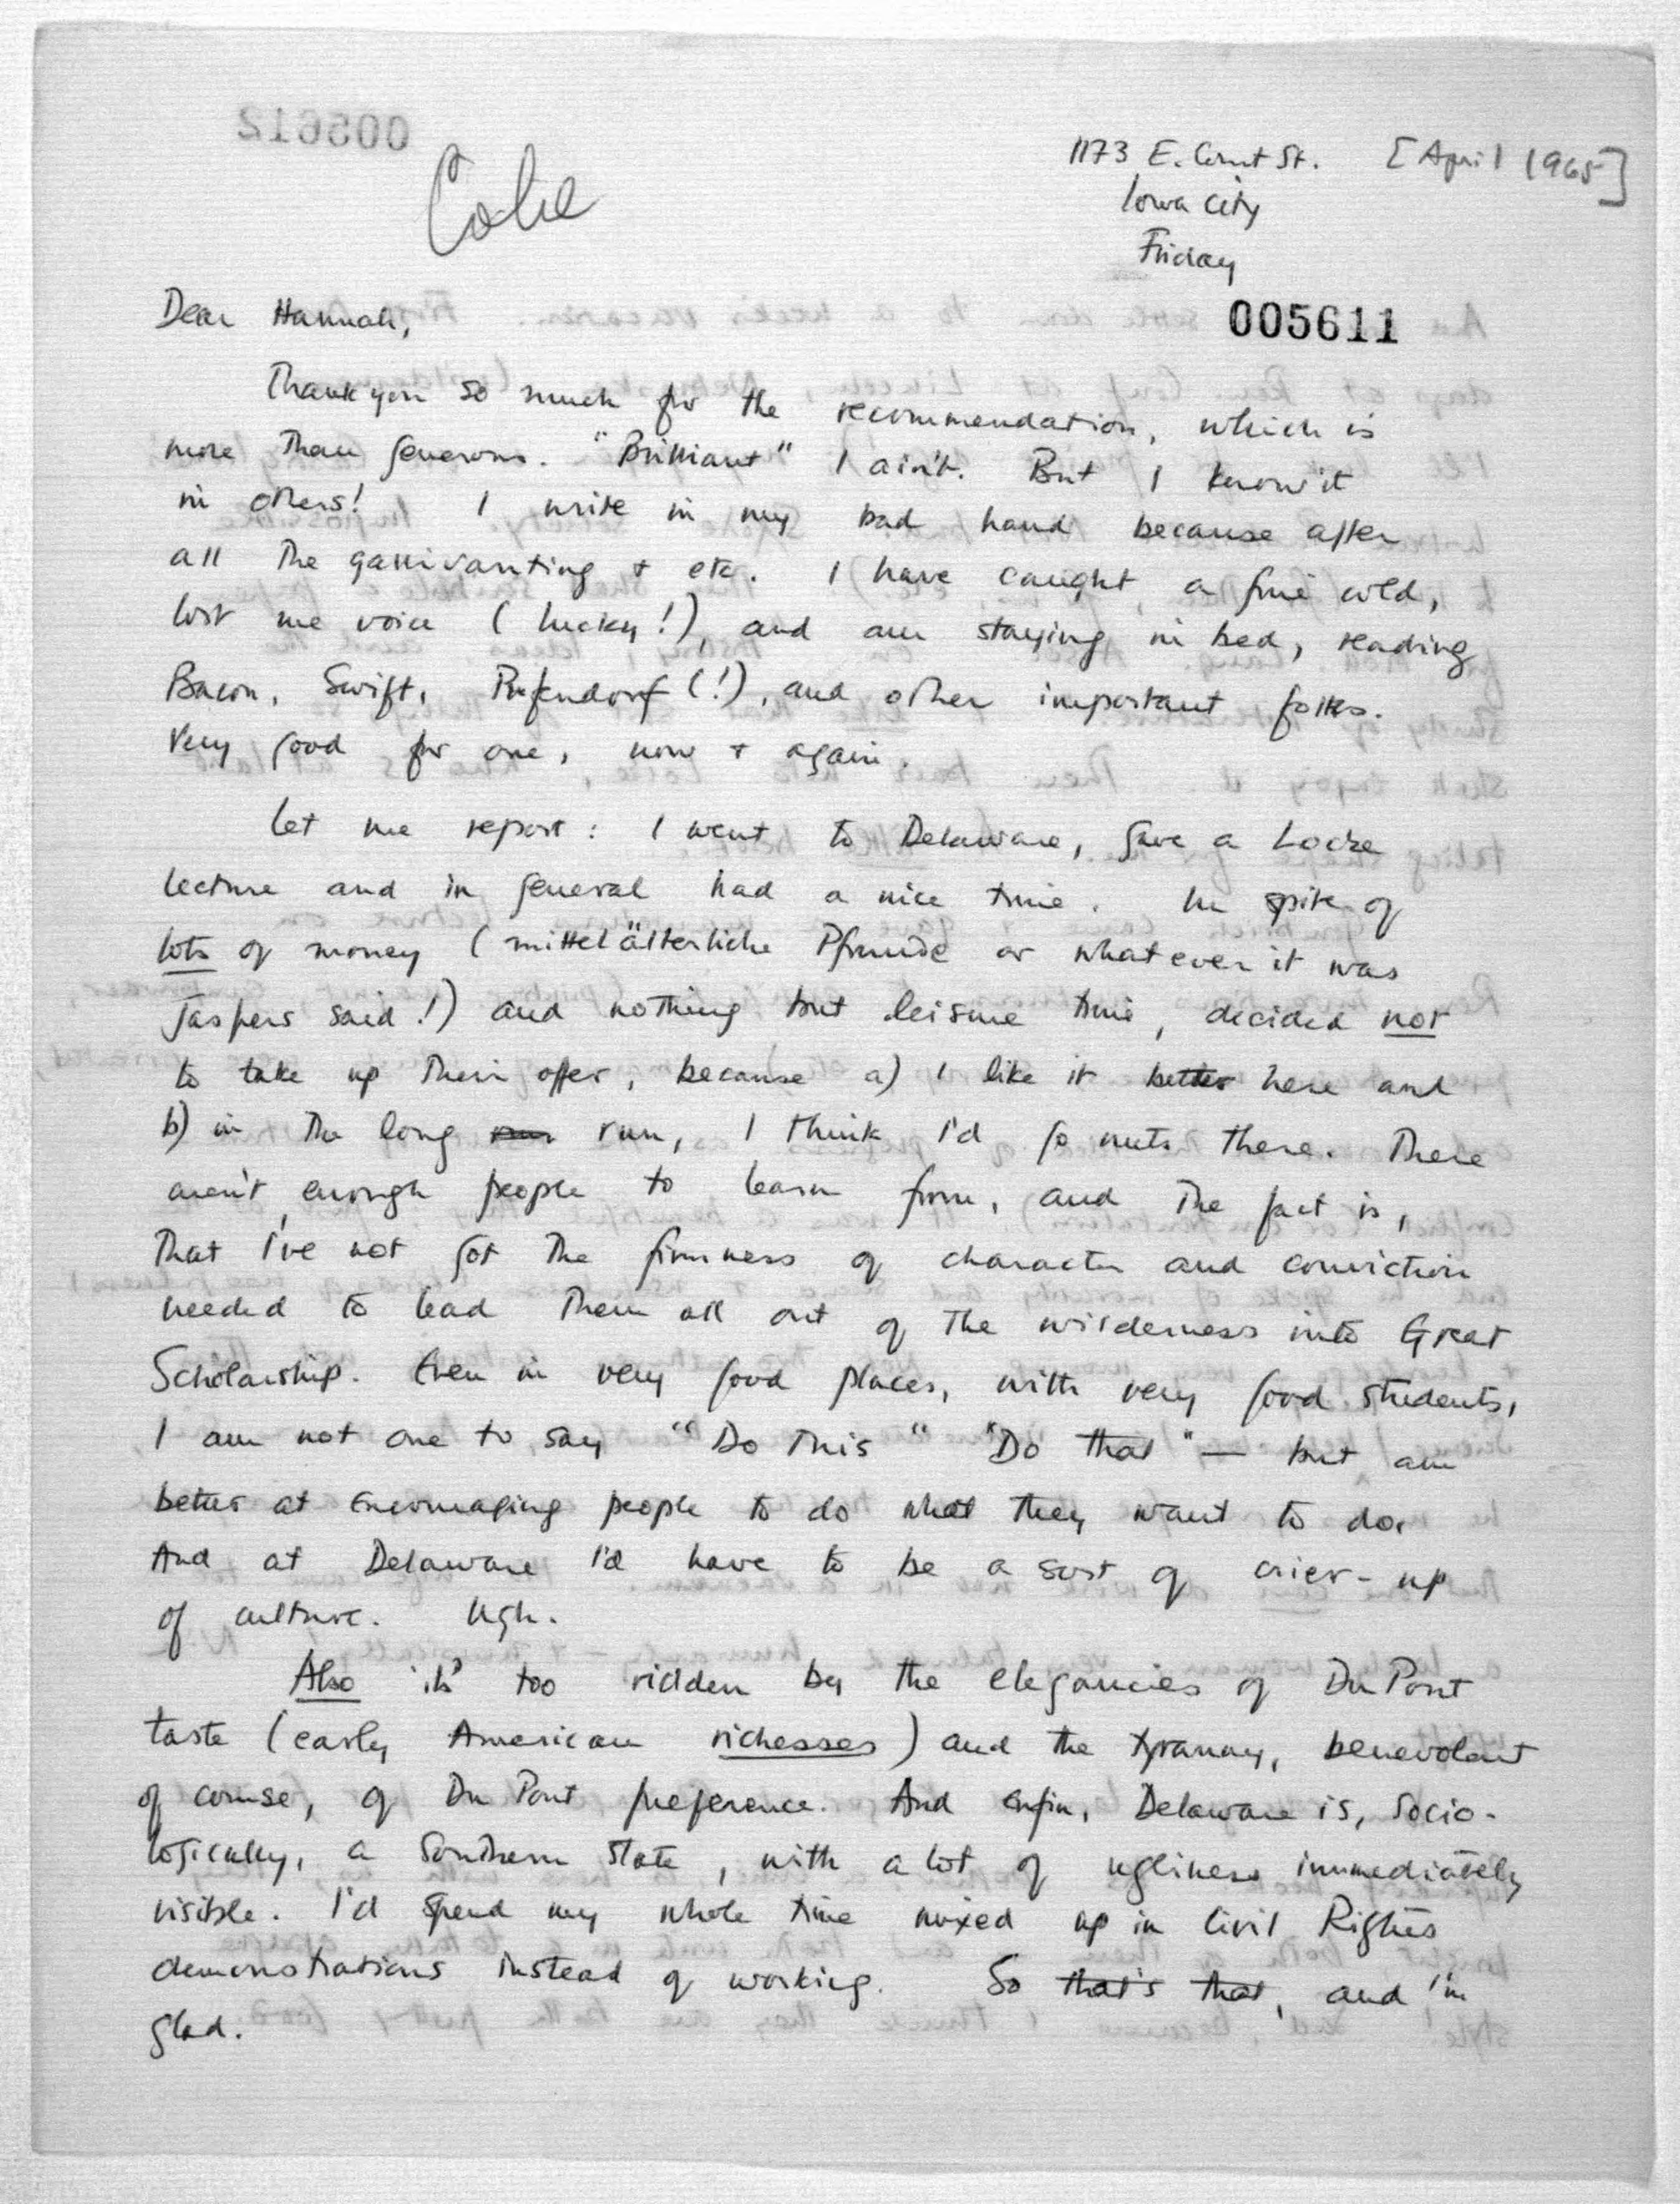 1173 E. Court St. [April 1965]
Colie
Iowa City
Friday
005611
Dear Hannah,
Thank you so much for the recommendation, which is
more than generous. "Brilliant" I ain't. But I know it
in others! I write in my bad hand because after
all the gallivanting + etc. I have caught a fine cold,
lost me voice (lucky!), and am staying in bed, reading
Bacon, Swift, Pufendorf (!), and other important folks.
Very good for one, now + again.
Let me report: I went to Delaware, gave a Locke
lecture and in general had a nice time. In spite of
lots of money (mittelälterliche Pfründe or whatever it was
Jaspers said!) and nothing but leisure time, decided not
to take up their offer, because a) I like it better here and
b) in the long run, I think I'd go nuts there. There
aren't enough people to learn from, and the fact is,
that I've not got the firmness of character and conviction
needed to lead them all out of the wilderness into Great
Scholarship. Even in very good places, with very good students,
I am not one to say "Do this" "Do that" — but am
better at encouraging people to do what they want to do.
And at Delaware I'd have to be a sort of crier-up
of culture. Ugh.
Also it's too ridden by the elegancies of DuPont
taste (early American richesses) and the tyranny, benevolent
of course, of Du Pont preference. And enfin, Delaware is, socio-
logically, a Southern state, with a lot of ugliness immediately
visible. I'd spend my whole time mixed up in Civil Rights
demonstrations instead of working. So that's that, and I'm
glad.